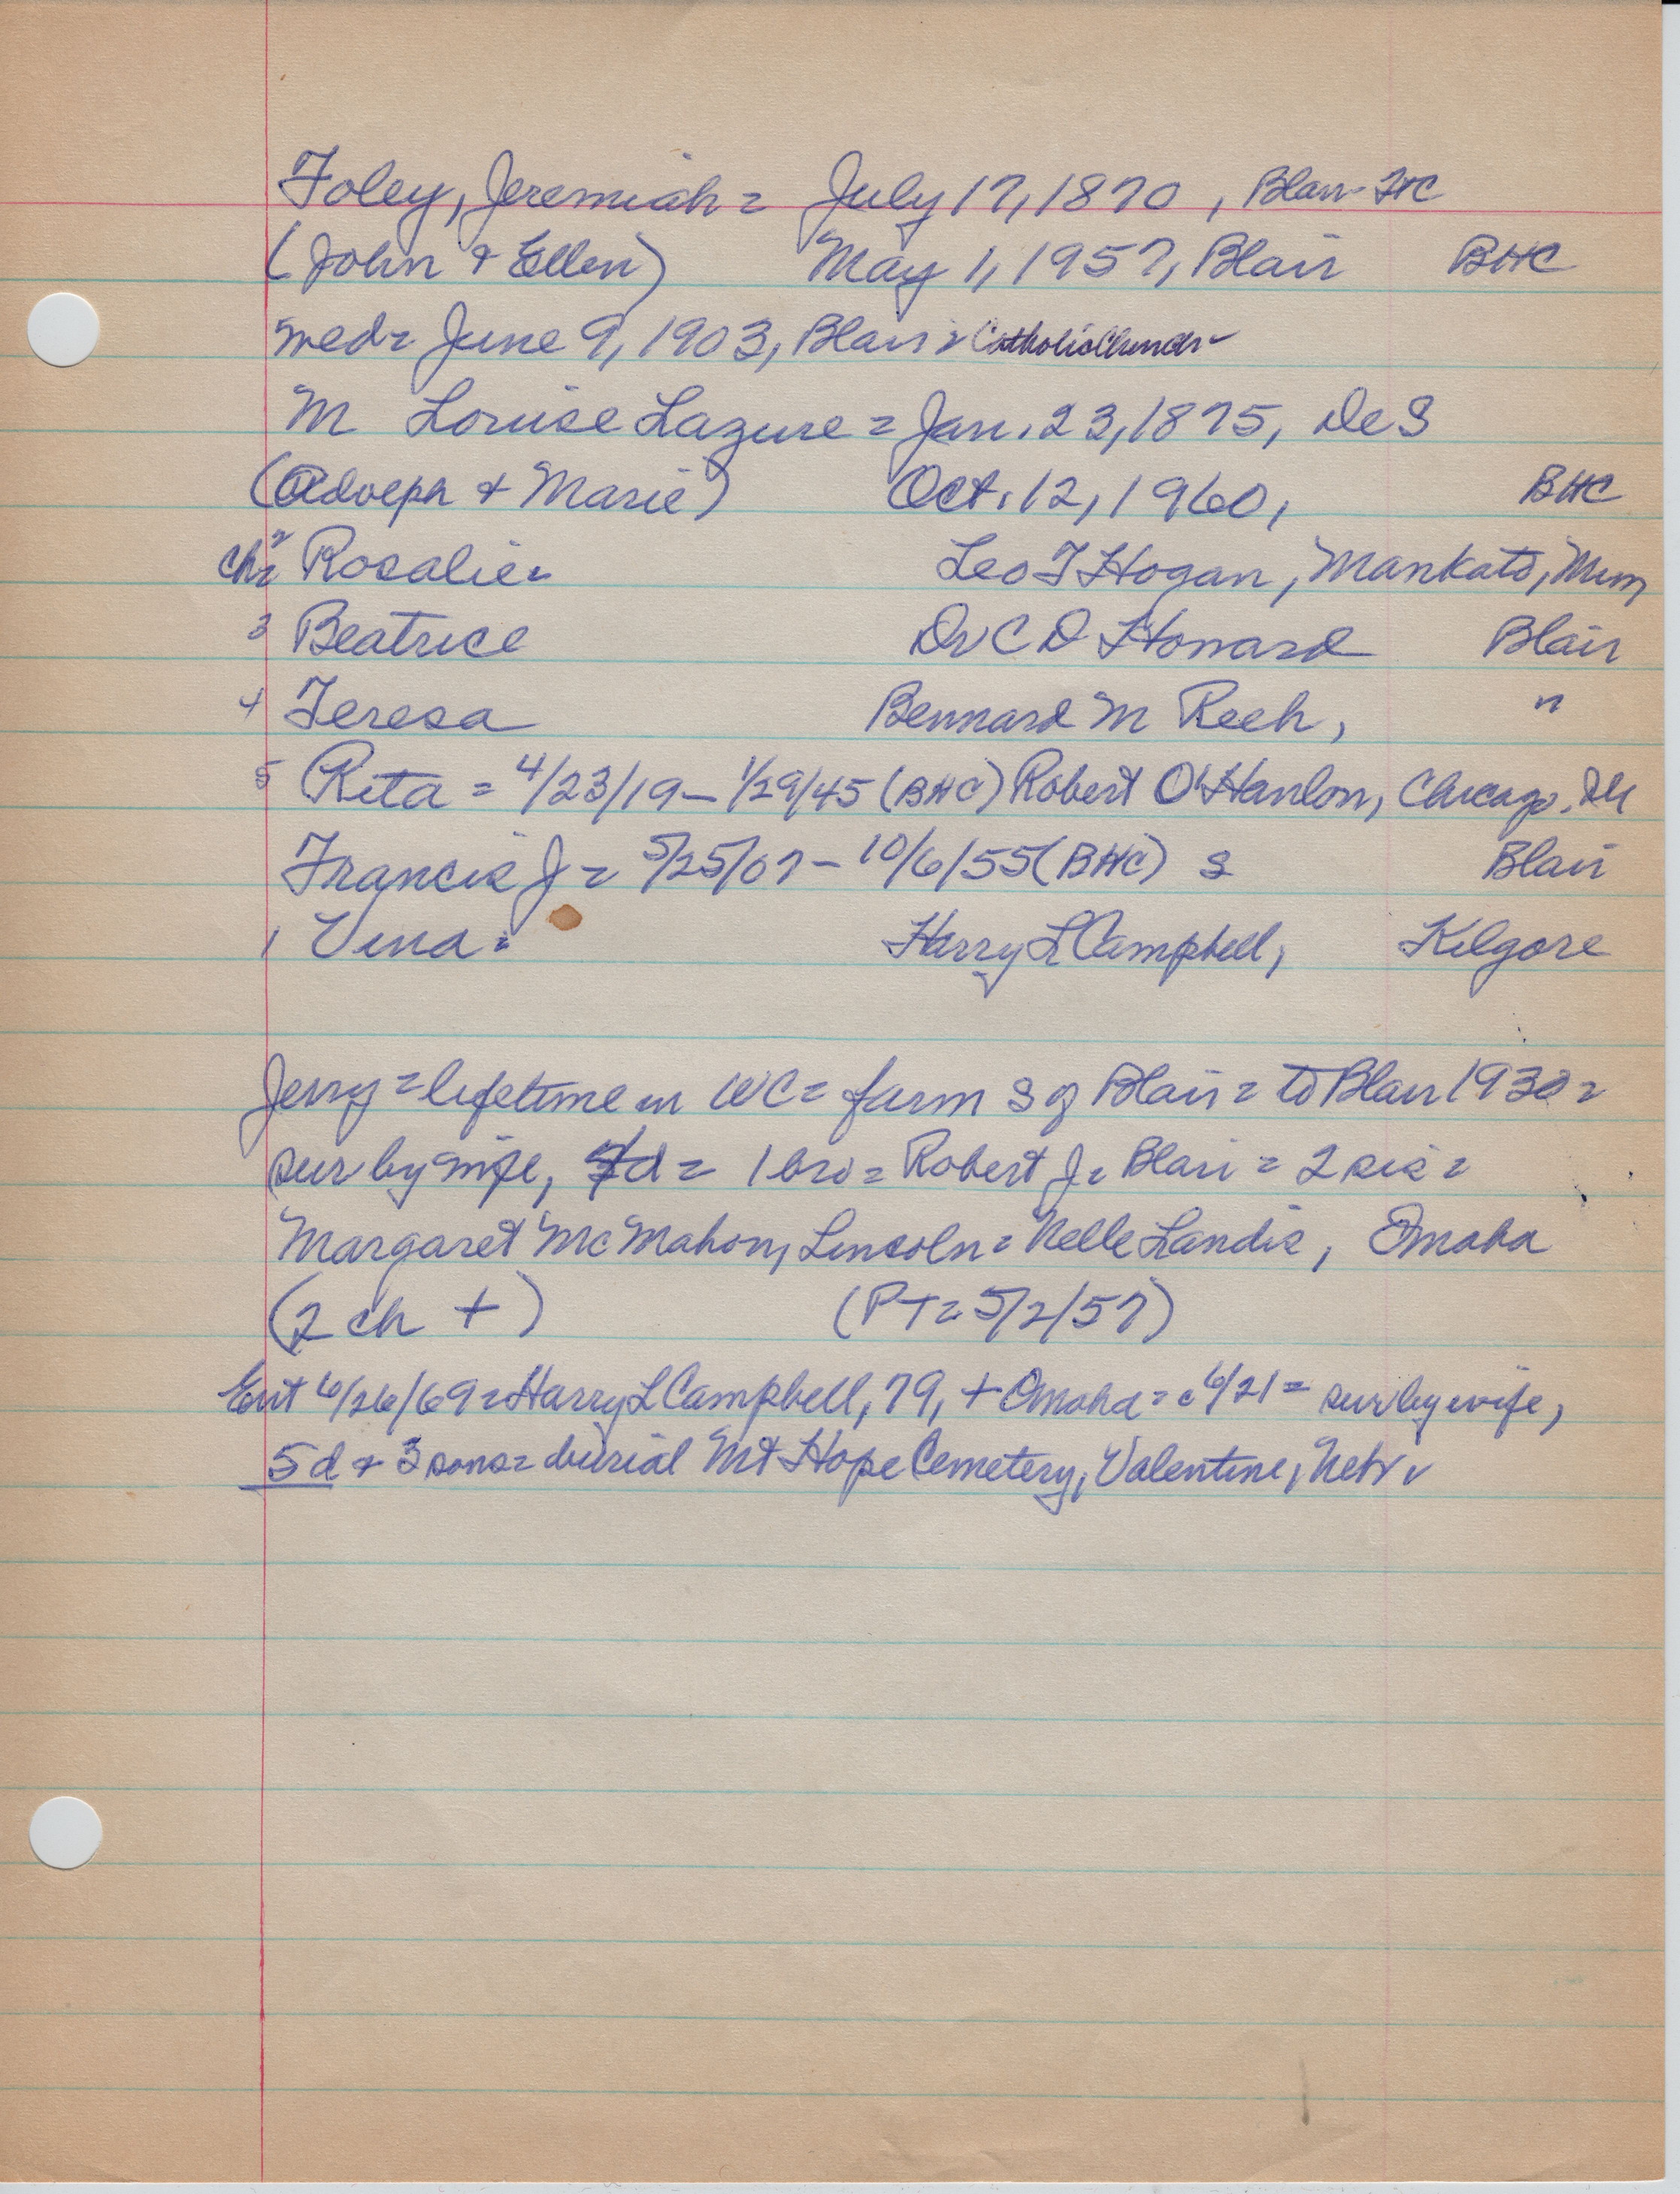 Foley, Jeremiah = July 17, 1870, Blair-
(John + Ellen) May 1, 1957, Blair BHC
wed = June 9, 1903, Blair = Catholic Church
M Louise Lazure = Jan. 23, 1875, De S
(Adolph + Marie) Oct. 12, 1960, BHC
ch = 2 Rosalie = Leo F Hogan, Mankato, Minn
3 Beatrice Dr C D Howard Blair
4 Teresa Bernard M Reeh, "
5 Rita = 4/23/19 - 1/29/45 (BHC) Robert O'Hanlon, Chicago, Ill
Francis J = 5/25/07 - 10/6/55 (BHC) S Blair
1 Vena = Harry L Campbell, Kilgore
Jerry = lifetime in WC = farm S of Blair = to Blair 1930 =
sur by wife, d = 1 bro = Robert J = Blair = 2 sis =
Margaret McMahon, Lincoln = Nelle Landis, Omaha
(2 ch +) (PT = 5/2/57)
Ent 6/26/69 = Harry L Campbell, 79, + Omaha = c 6/21 = sur by wife,
5 d + 3 sons = burial Mt Hope Cemetery, Valentine, Nebr